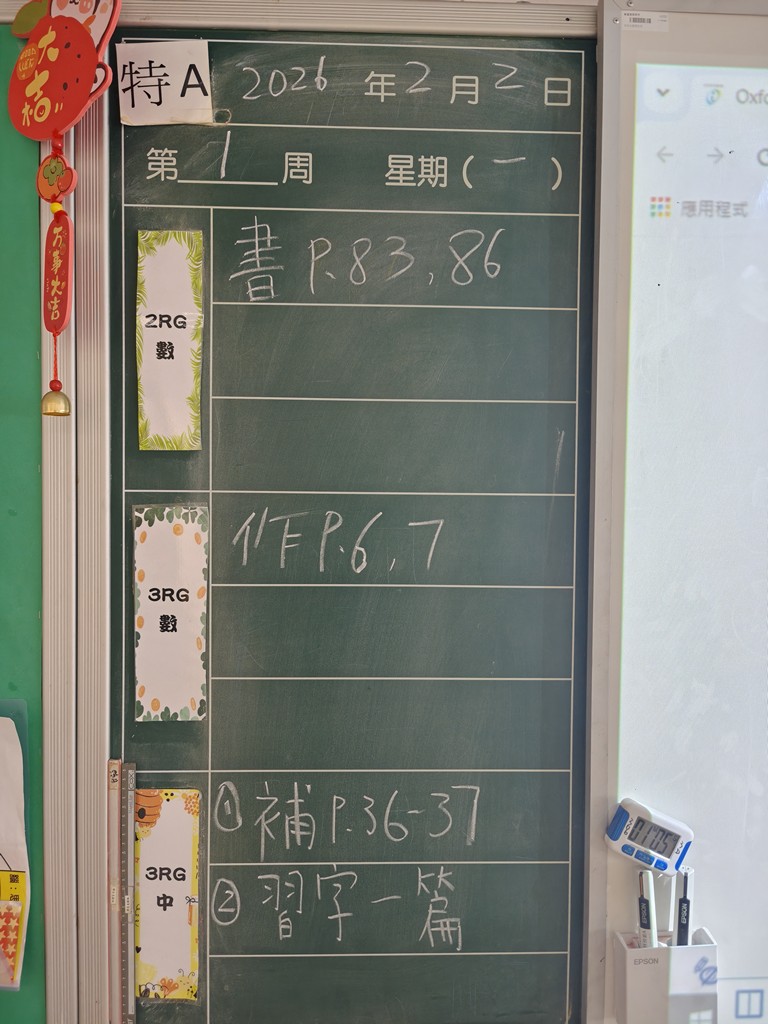 大吉
万事大吉
特A
2026年2月2日
第1周 星期(一)
2RG
數
書 P.83,86
3RG
數
作 P.6,7
3RG
中
① 補 P.36-37
② 習字一篇
Oxfo
應用程式
EPSON
EPSON
EPSON